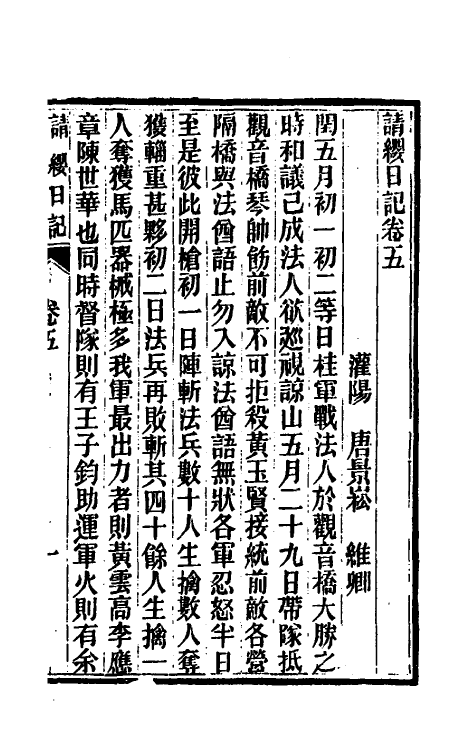 請纓日記卷五
灌陽　唐景崧　維卿
閏五月初一初二等日桂軍戰法人於觀音橋大勝之
時和議已成法人欲巡視諒山五月二十九日帶隊抵
觀音橋琴帥飭前敵不可拒殺黃玉賢接統前敵各營
隔橋與法酋語止勿入諒法酋語無狀各軍忍怒半日
至是彼此開槍初一日陣斬法兵數十人生擒數人奪
獲輜重甚夥初二日法兵再敗斬其四十餘人生擒一
人奪獲馬匹器械極多我軍最出力者則黃雲高李應
章陳世華也同時督隊則有王子鈞助運軍火則有余
請纓日記　卷五　一